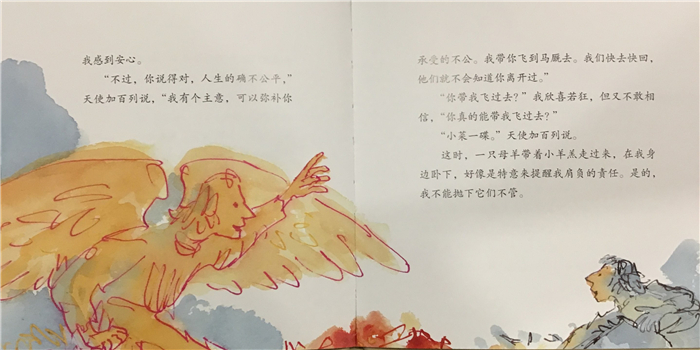 我感到安心。
“不过，你说得对，人生的确不公平，”
天使加百列说，“我有个主意，可以弥补你
承受的不公。我带你飞到马厩去。我们快去快回，
他们就不会知道你离开过。”
“你带我飞过去？”我欣喜若狂，但又不敢相
信，“你真的能带我飞过去？”
“小菜一碟。”天使加百列说。
这时，一只母羊带着小羊羔走过来，在我身
边卧下，好像是特意来提醒我肩负的责任。是的，
我不能抛下它们不管。